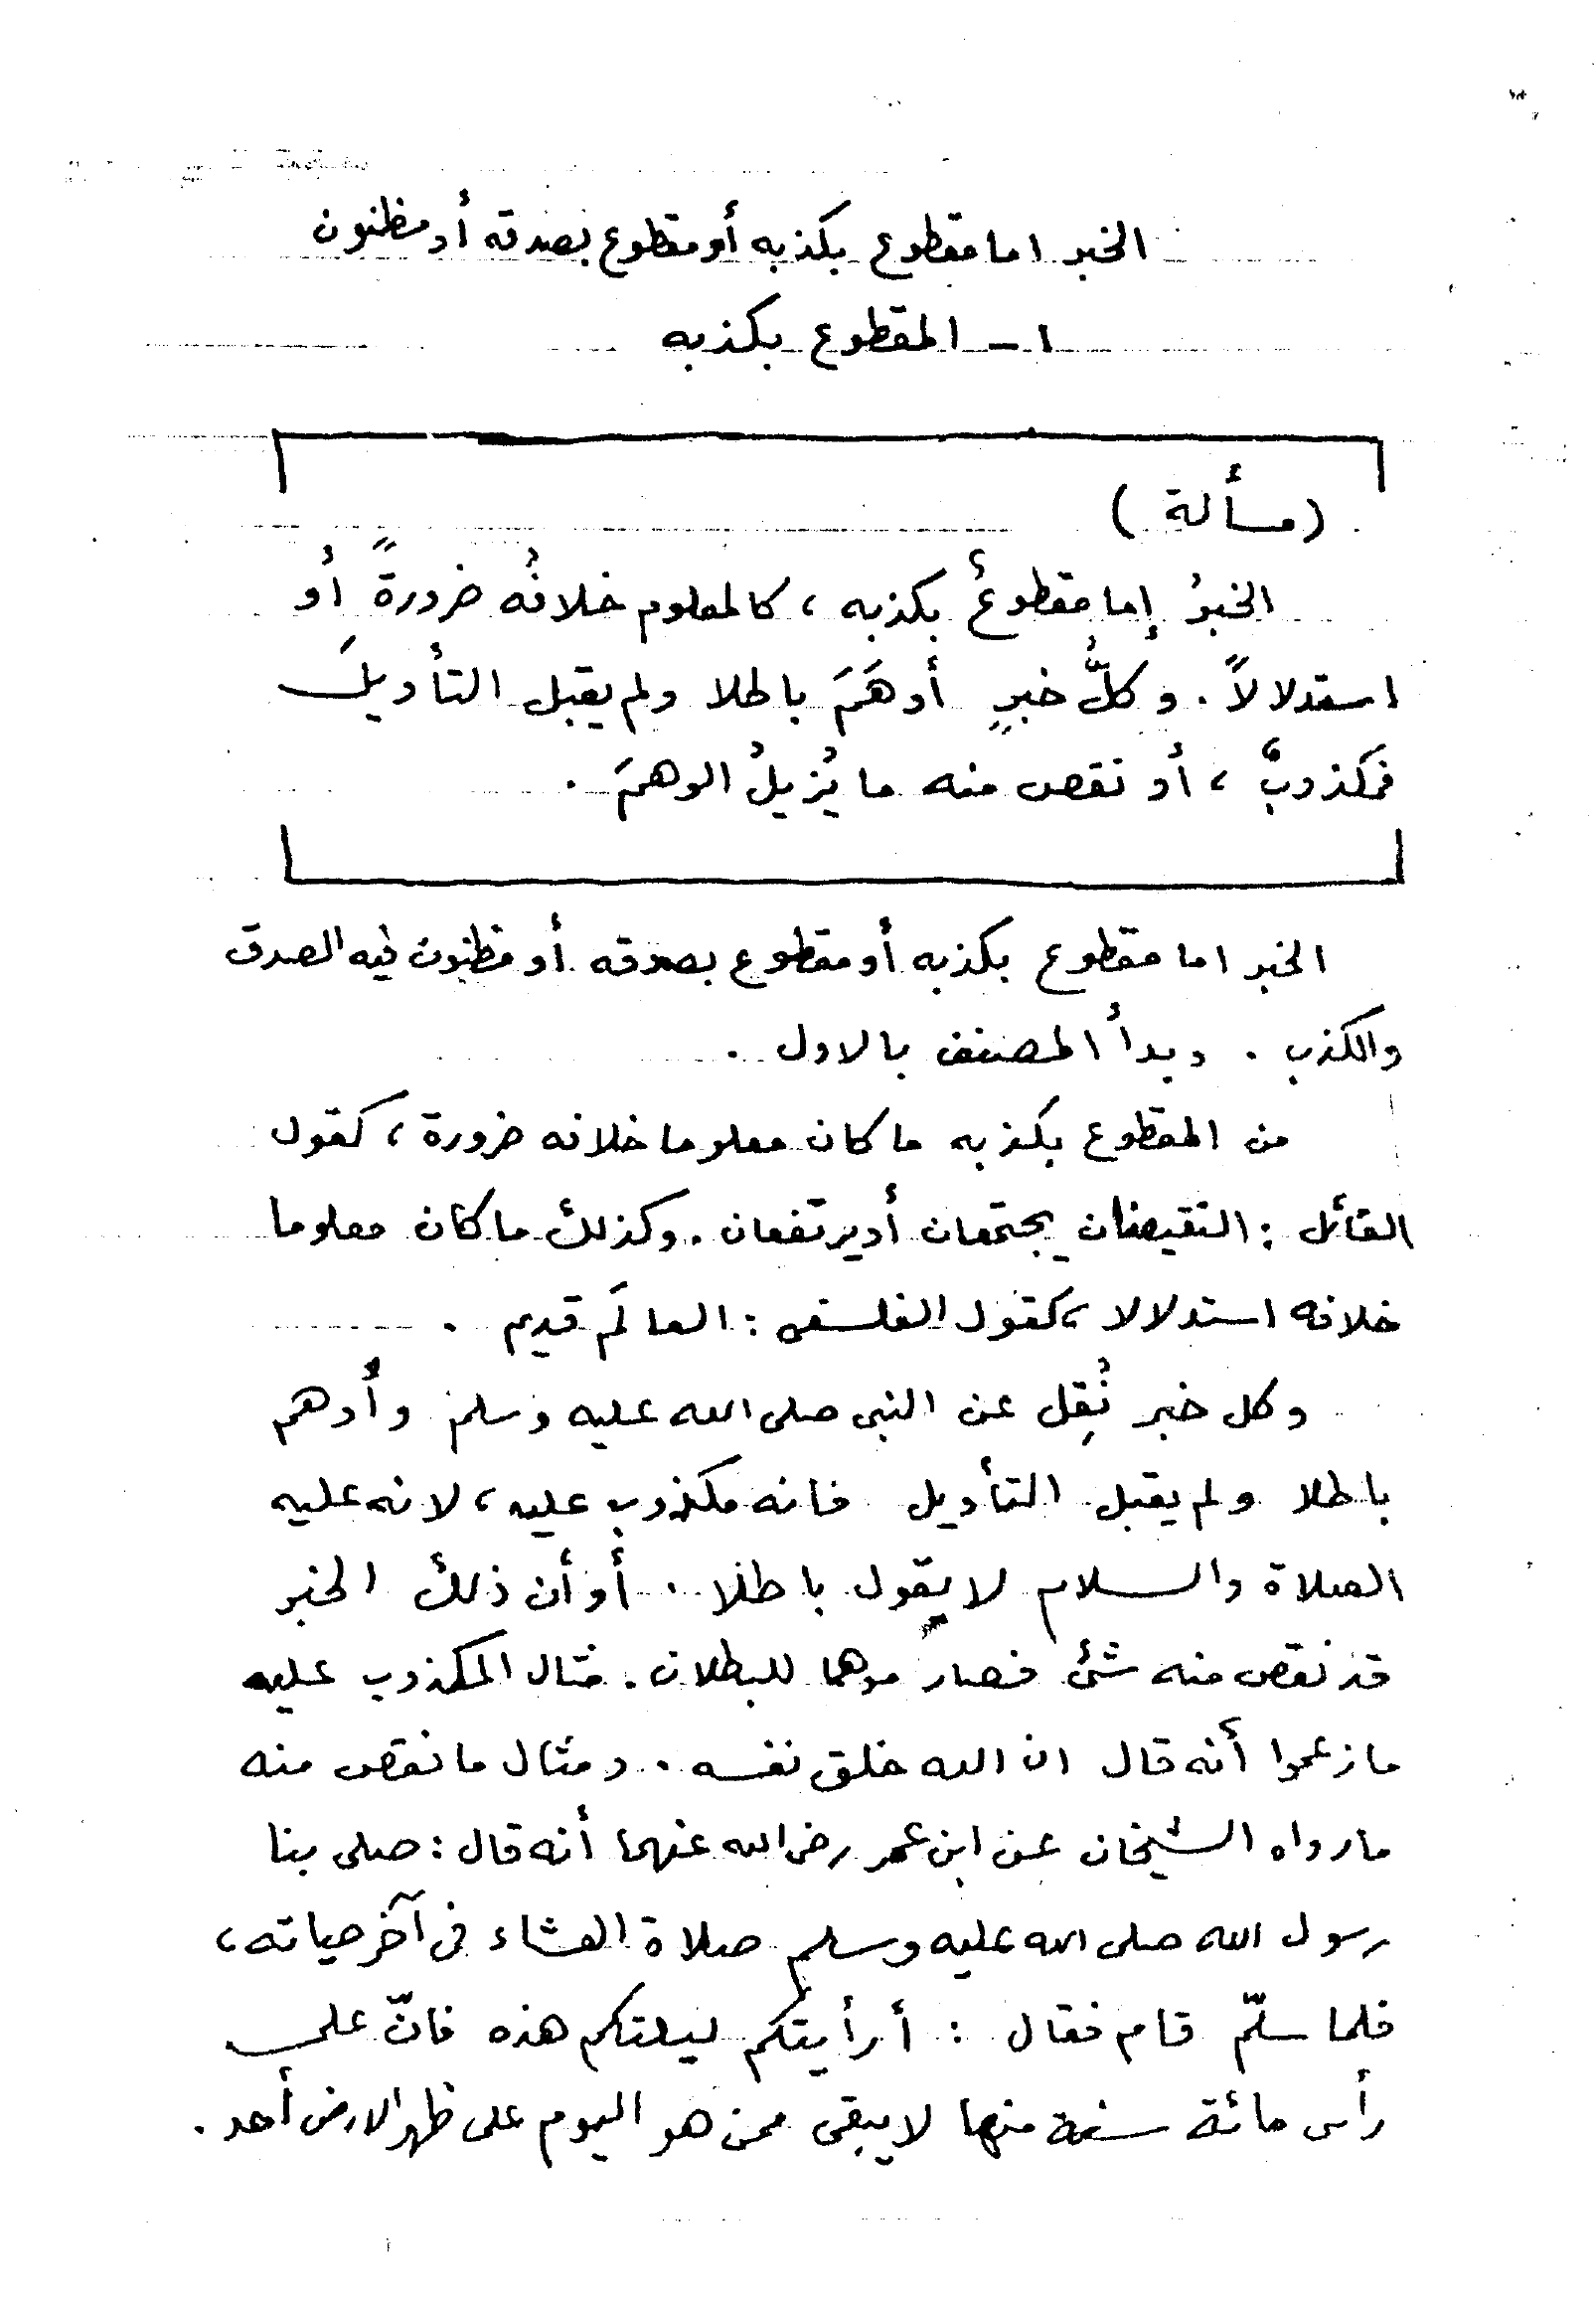 الخبر اما مقطوع بكذبه أو مقطوع بصدقه أو مظنون
١ - المقطوع بكذبه
(مسألة)
الخبرُ إما مقطوعٌ بكذبه ، كالمعلوم خلافُه ضرورةً أو
استدلالاً . وكلُّ خبرٍ أوهَمَ باطلا ولم يقبل التأويلَ
فمكذوبٌ ، أو نقص منه ما يُزيلُ الوهمَ .
الخبر اما مقطوع بكذبه أو مقطوع بصدقه أو مظنون فيه الصدق
والكذب . وبدأ المصنف بالاول .
من المقطوع بكذبه ما كان معلوما خلافه ضرورة ، كقول
القائل : النقيضان يجتمعان أو يرتفعان . وكذلك ما كان معلوما
خلافه استدلالا ، كقول الفلسفى : العالَم قديم .
وكل خبر نُقِل عن النبى صلى الله عليه وسلم وأوهم
باطلا ولم يقبل التأويل فانه مكذوب عليه ، لانه عليه
الصلاة والسلام لا يقول باطلا . أو أن ذلك الخبر
قد نقص منه شئ فصار موهما للبطلان . مثال المكذوب عليه
ما زعموا أنه قال ان الله خلق نفسه . ومثال ما نقص منه
ما رواه الشيخان عن ابن عمر رضى الله عنهما أنه قال : صلى بنا
رسول الله صلى الله عليه وسلم صلاة العشاء فى آخر حياته ،
فلما سلّم قام فقال : أرأيتكم ليلتكم هذه فانّ على
رأس مائة سنة منها لا يبقى ممن هو اليوم على ظهر الارض أحد .